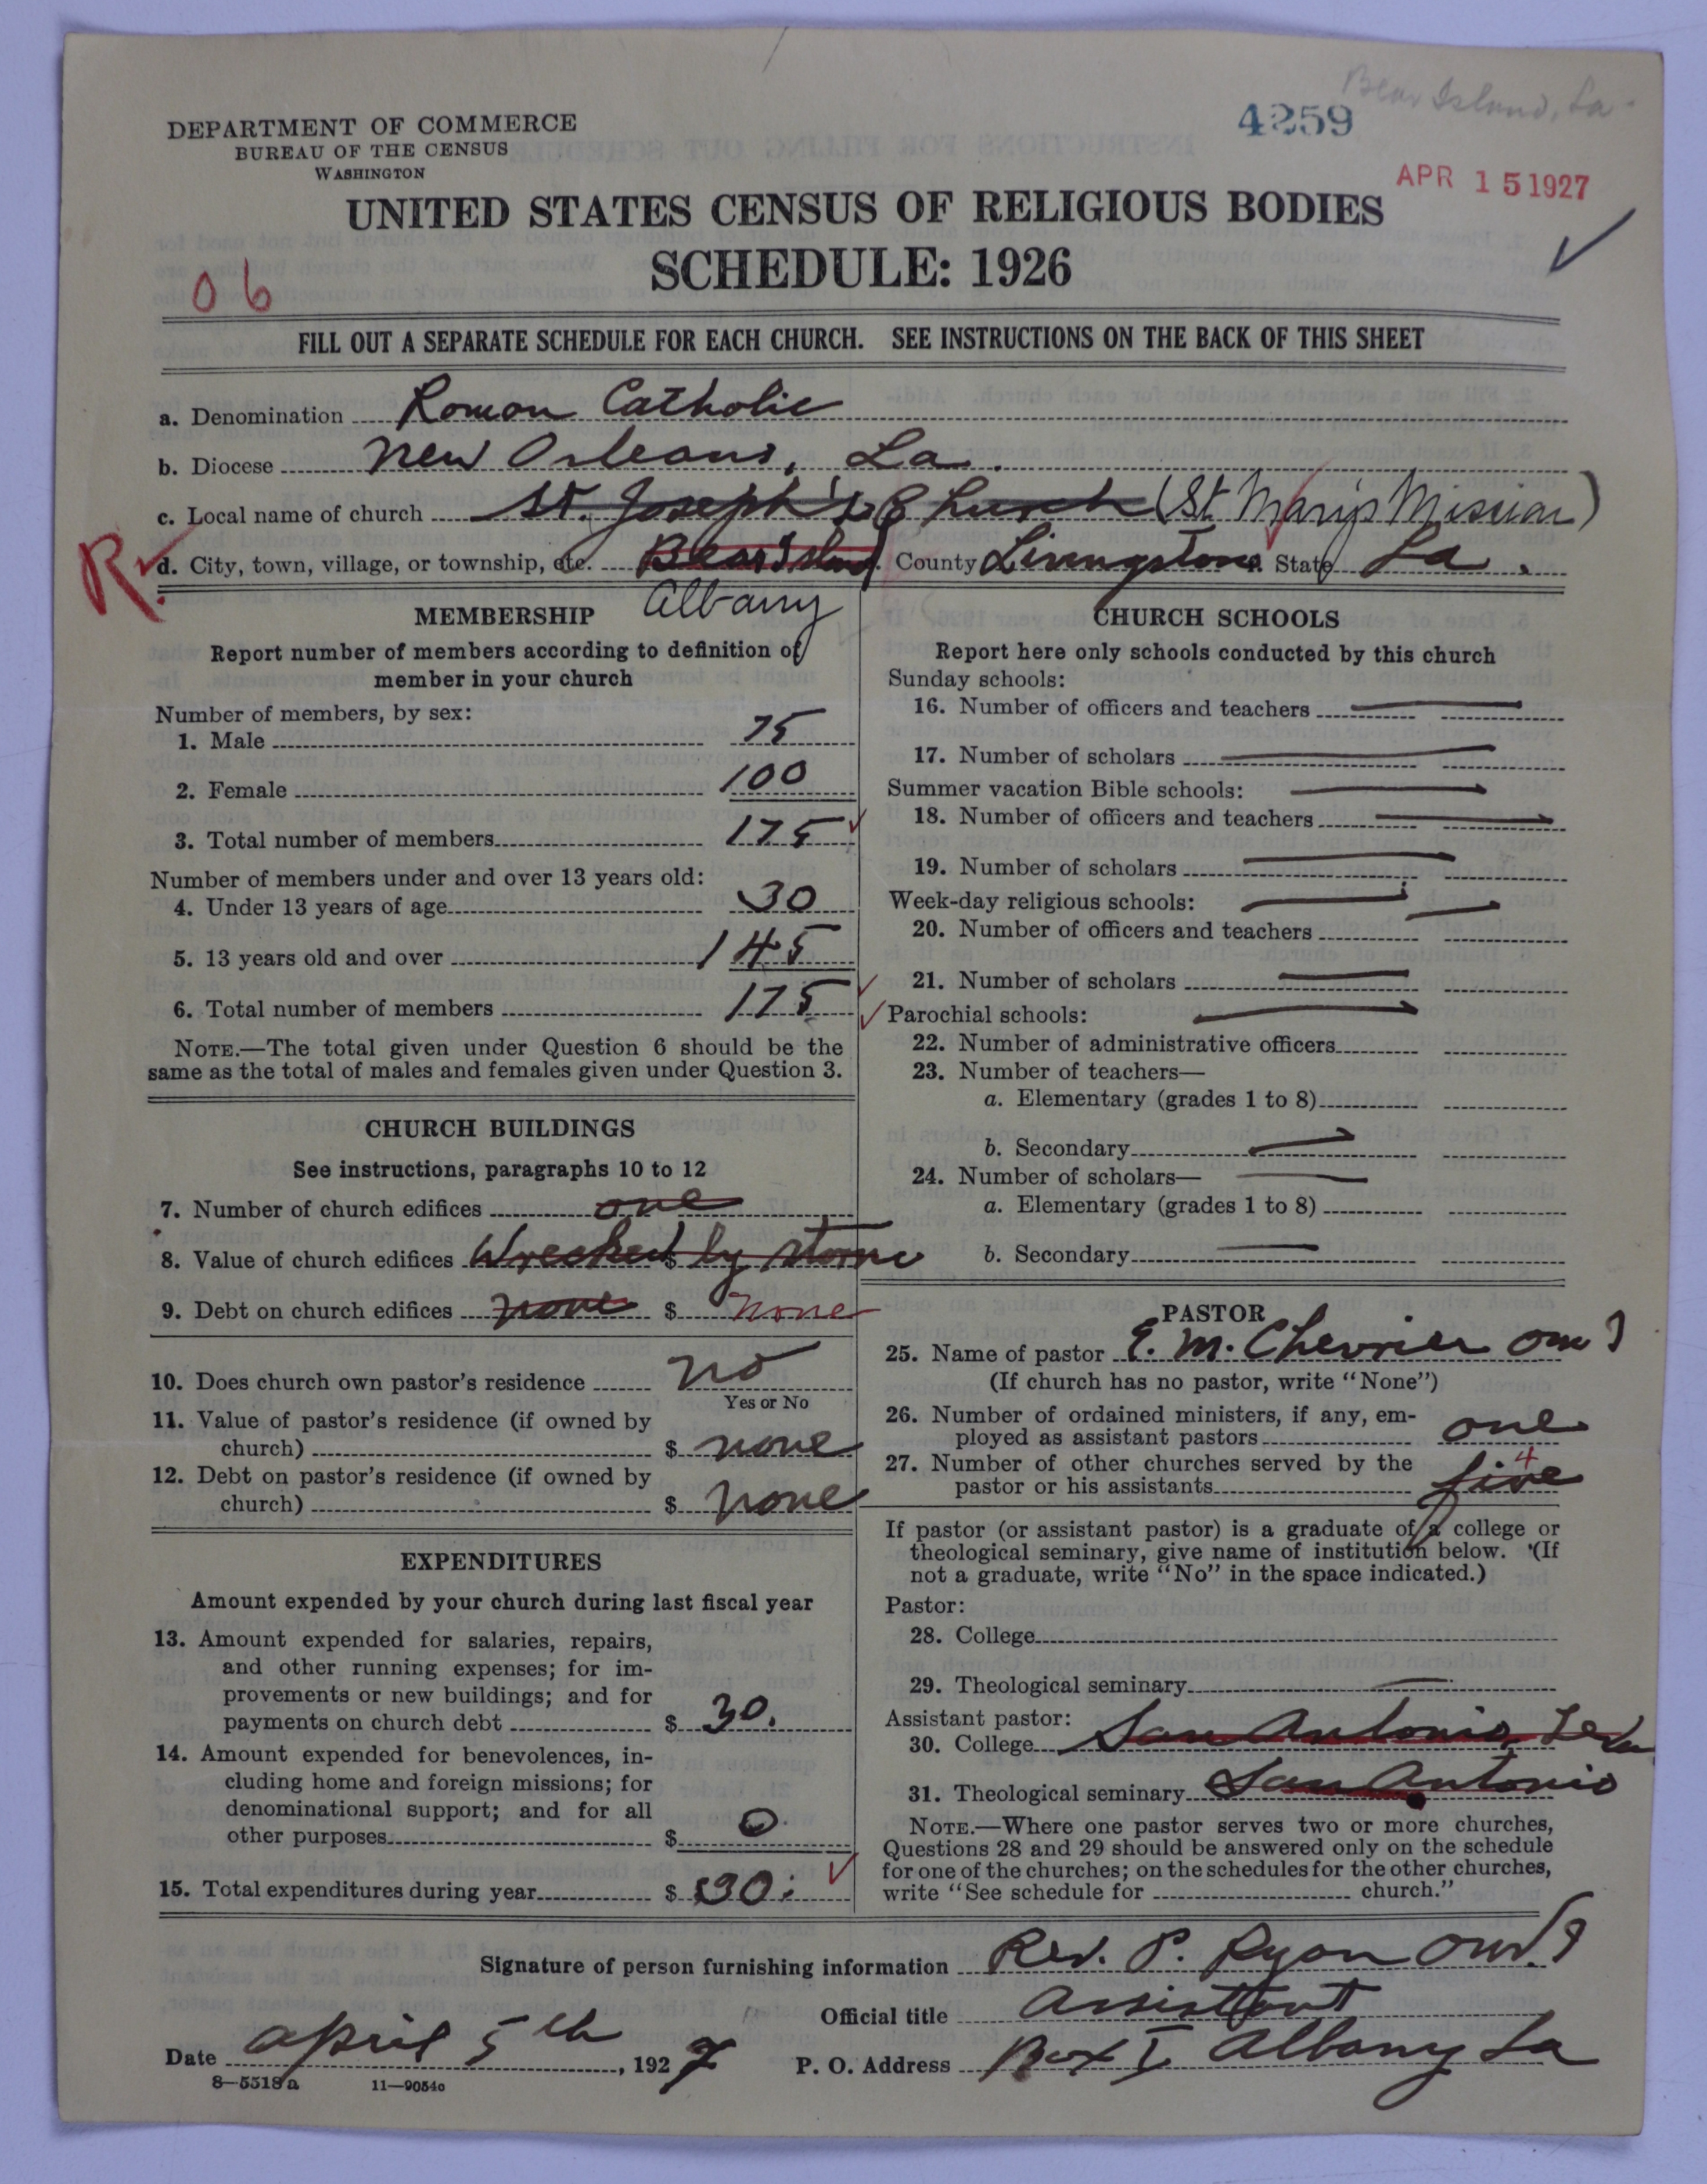 Bear Island, La.
4259
DEPARTMENT OF COMMERCE
BUREAU OF THE CENSUS
WASHINGTON
APR 15 1927
UNITED STATES CENSUS OF RELIGIOUS BODIES
SCHEDULE: 1926
06
FILL OUT A SEPARATE SCHEDULE FOR EACH CHURCH. SEE INSTRUCTIONS ON THE BACK OF THIS SHEET
a. Denomination Roman Catholic
b. Diocese New Orleans, La.
c. Local name of church St. Joseph's Church (St Mary's Mission)
R. d. City, town, village, or township, etc. Bear Island County Livingstone State La.
Albany
MEMBERSHIP
Report number of members according to definition of
member in your church
Number of members, by sex:
1. Male 75
2. Female 100
3. Total number of members 175
Number of members under and over 13 years old:
4. Under 13 years of age 30
5. 13 years old and over 145
6. Total number of members 175
NOTE.—The total given under Question 6 should be the
same as the total of males and females given under Question 3.
CHURCH BUILDINGS
See instructions, paragraphs 10 to 12
7. Number of church edifices one
8. Value of church edifices $ Wrecked by storm
9. Debt on church edifices none $ none
10. Does church own pastor's residence no
Yes or No
11. Value of pastor's residence (if owned by
church) $ none
12. Debt on pastor's residence (if owned by
church) $ none
EXPENDITURES
Amount expended by your church during last fiscal year
13. Amount expended for salaries, repairs,
and other running expenses; for im-
provements or new buildings; and for
payments on church debt $ 30.
14. Amount expended for benevolences, in-
cluding home and foreign missions; for
denominational support; and for all
other purposes $ 0.
15. Total expenditures during year $ 30.
CHURCH SCHOOLS
Report here only schools conducted by this church
Sunday schools:
16. Number of officers and teachers
17. Number of scholars
Summer vacation Bible schools:
18. Number of officers and teachers
19. Number of scholars
Week-day religious schools:
20. Number of officers and teachers
21. Number of scholars
Parochial schools:
22. Number of administrative officers
23. Number of teachers—
a. Elementary (grades 1 to 8)
b. Secondary
24. Number of scholars—
a. Elementary (grades 1 to 8)
b. Secondary
PASTOR
25. Name of pastor E. M. Chevrier omI
(If church has no pastor, write "None")
26. Number of ordained ministers, if any, em-
ployed as assistant pastors one
27. Number of other churches served by the
pastor or his assistants five 4
If pastor (or assistant pastor) is a graduate of a college or
theological seminary, give name of institution below. (If
not a graduate, write "No" in the space indicated.)
Pastor:
28. College
29. Theological seminary
Assistant pastor:
30. College San Antonio, Texas
31. Theological seminary San Antonio
NOTE.—Where one pastor serves two or more churches,
Questions 28 and 29 should be answered only on the schedule
for one of the churches; on the schedules for the other churches,
write "See schedule for church."
Signature of person furnishing information Rev. P. Ryan OMI
Official title Assistant
Date April 5th, 1927 P. O. Address Box I Albany La
8—5518a 11—9054o